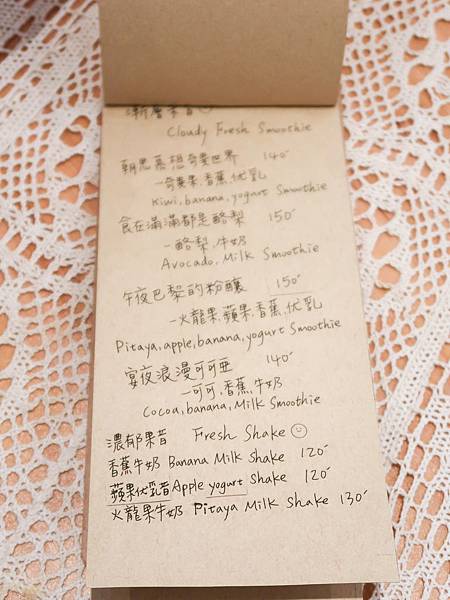 漸層果昔☺
Cloudy Fresh Smoothie
朝思慕想奇異世界 140
-奇異果,香蕉,优乳
Kiwi, banana, yogurt Smoothie
食在滿滿都是酪梨 150
-酪梨,牛奶
Avocado, Milk Smoothie
午夜巴黎的粉釀 150
-火龍果,蘋果,香蕉,优乳
Pitaya, apple, banana, yogurt Smoothie
宴夜浪漫可可亞 140
-可可,香蕉,牛奶
Cocoa, banana, Milk Smoothie
濃郁果昔 Fresh Shake ☺
香蕉牛奶 Banana Milk Shake 120
蘋果优乳昔 Apple yogurt Shake 120
火龍果牛奶 Pitaya Milk Shake 130